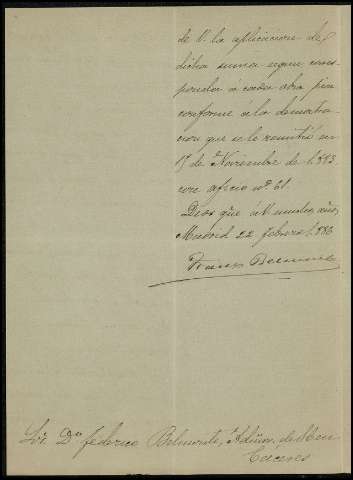 de V. la aplicacion de
dicha suma segun corres-
ponda á cada obra pia
conforme á la demostra-
cion que se le remitió en
15 de Noviembre de 1.883
con oficio nº 61.
Dios gũe á V. muchos años
Madrid 22 febrero 1.886
Sr. Dn. Federico Belmonte, Admor. de
Caceres